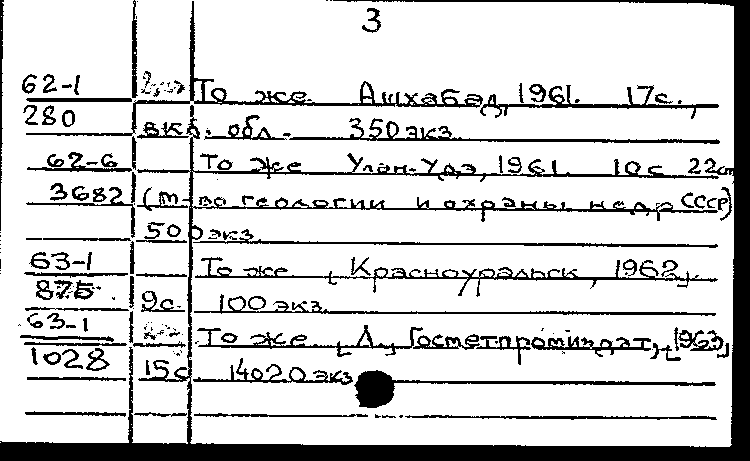 3
62-1 То же Ашхабад, 1961. 17с.,
280 вкл. обл. 350 экз.
62-6 То же Улан-Удэ, 1961. 10с 22см
3682 (М-во геологии и охраны недр СССР)
500 экз.
63-1 То же [Красноуральск, 1962].
875 9с. 100 экз.
63-1 То же. [Л., Госметпромиздат], [1963]
1028 15с 14020 экз